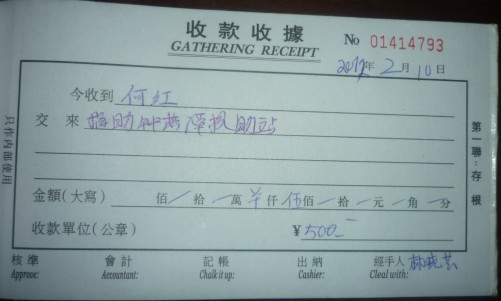 收款收據
GATHERING RECEIPT No 01414793
年 2 月 10 日
今收到 何红
交來 捐助 助站
金額(大寫) 佰 拾 萬 仟 伍佰 拾 元 角 分
收款單位(公章) ¥ 500
核準 會計 記帳 出納 經手人 林晓芸
Approve: Accountant: Chalk it up: Cashier: Cleal with:
只作内部使用
第一聯:存根